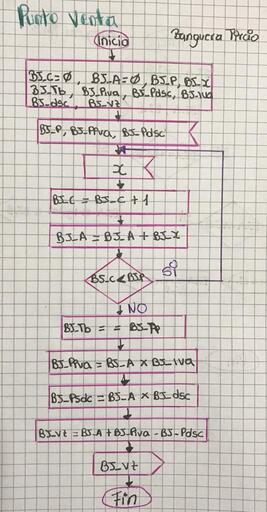 Punto Venta
Inicio
BJ_C=Ø, BJ_A=Ø, BJ_P, BJ_X
BJ_Tb, BJ_Piva, BJ_Pdsc, BJ_iva
BJ_dsc, BJ_vt
BJ_P, BJ_Piva, BJ_Pdsc
x
BJ_C = BJ_C + 1
BJ_A = BJ_A + BJ_X
BJ_C < BJ_P
SÍ
NO
BJ_Tb = =
BJ_Piva = BJ_A x BJ_iva
BJ_Psdc = BJ_A x BJ_dsc
BJ_vt = BJ_A + BJ_Piva - BJ_Pdsc
BJ_vt
Fin